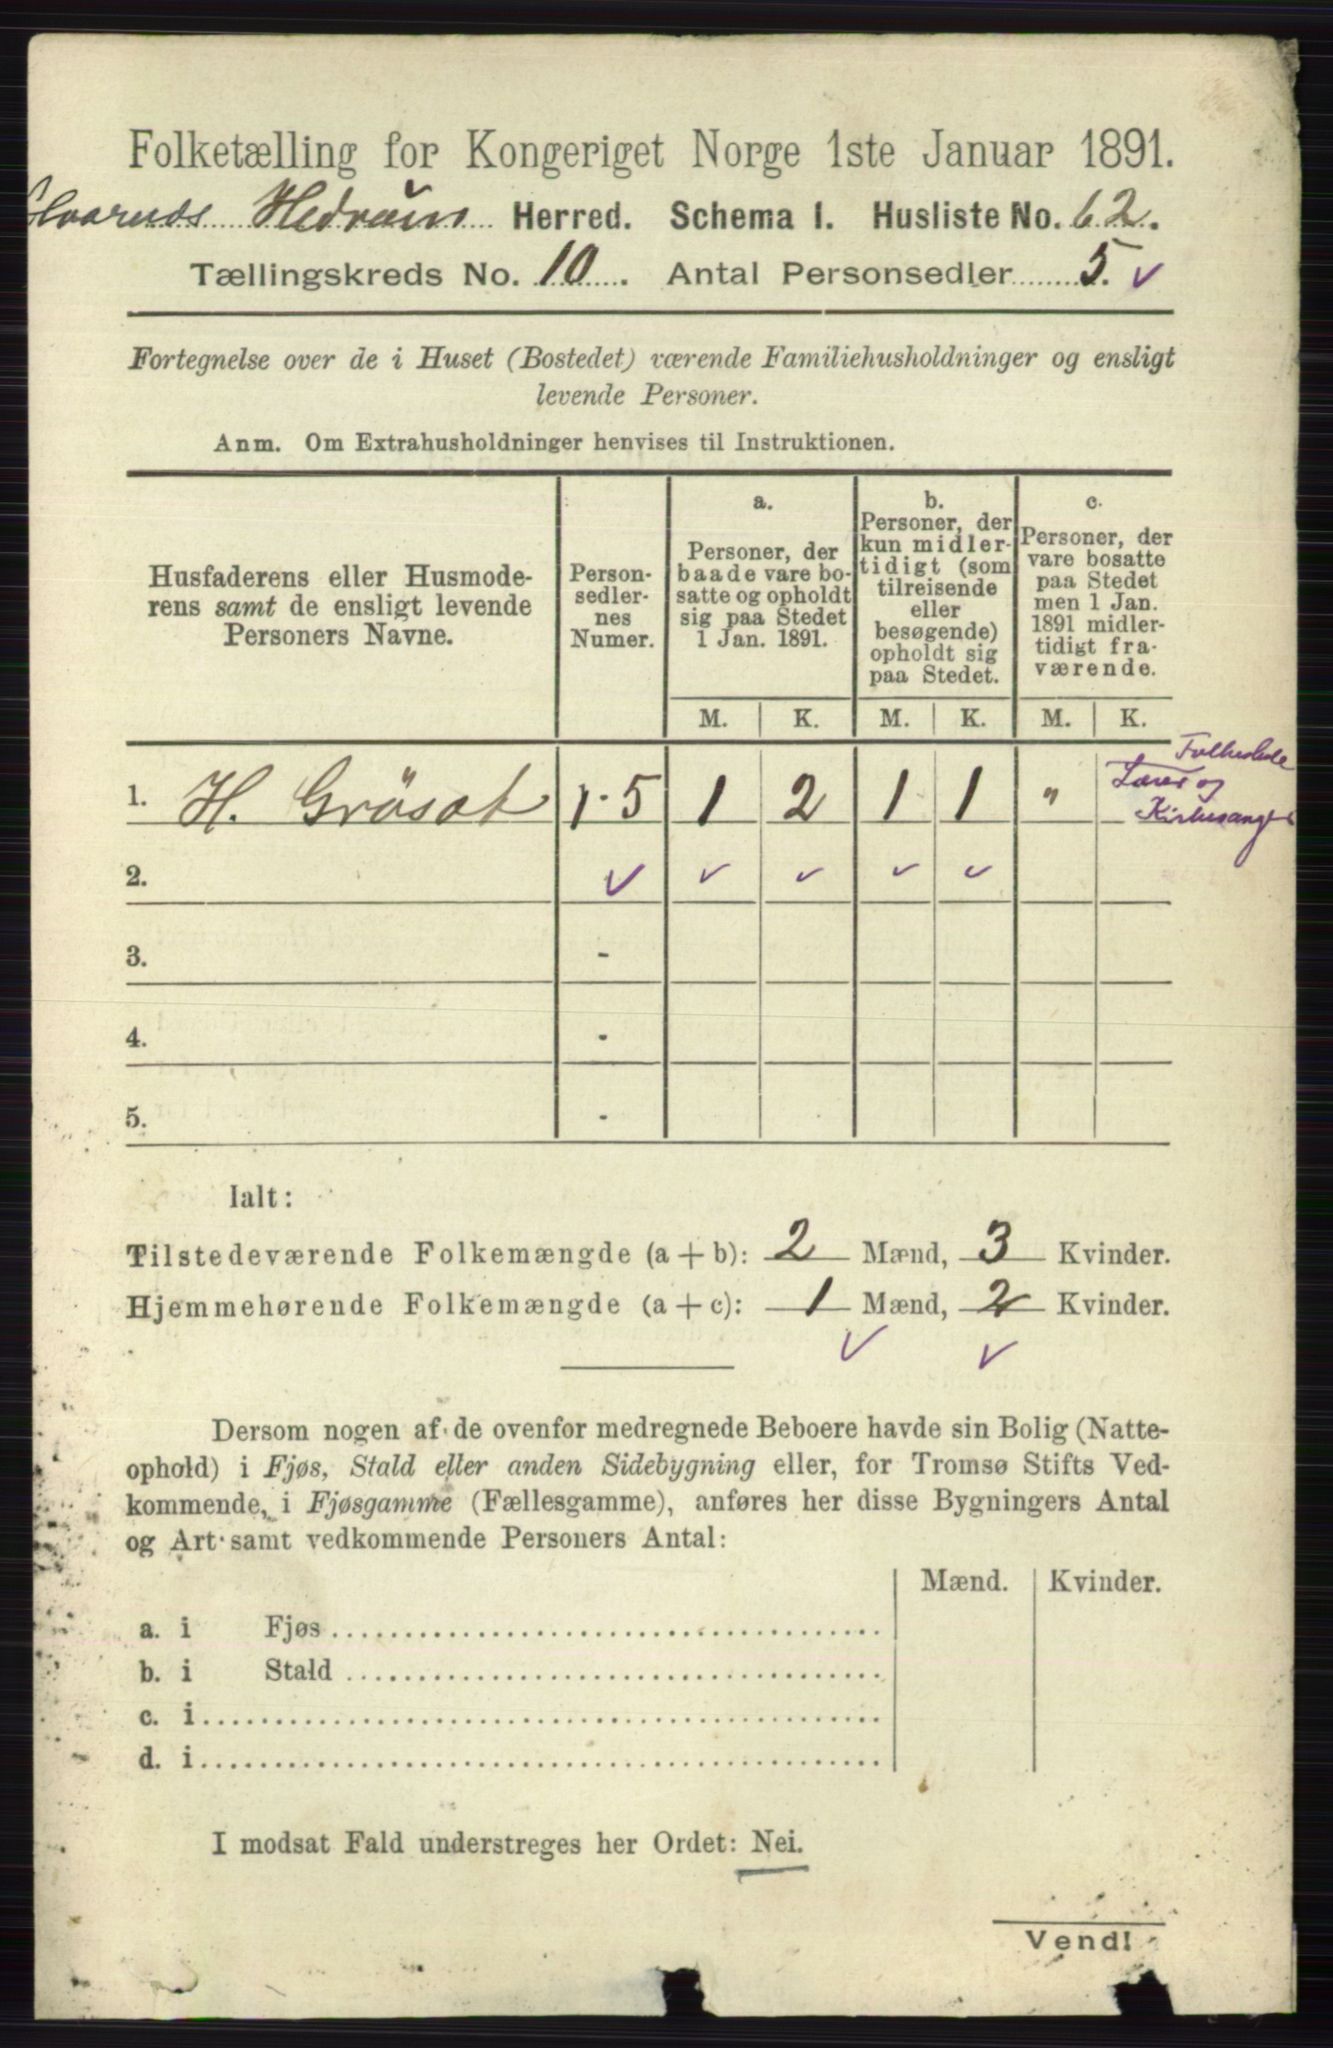 Folketælling for Kongeriget Norge 1ste Januar 1891.
Hedrum Herred. Schema I. Husliste No. 62.
Tællingskreds No. 10. Antal Personsedler 5. ✓
Fortegnelse over de i Huset (Bostedet) værende Familiehusholdninger og ensligt
levende Personer.
Anm. Om Extrahusholdninger henvises til Instruktionen.
Husfaderens eller Husmode-
rens samt de ensligt levende
Personers Navne.
Person-
sedler-
nes
Numer.
a.
Personer, der
baade vare bo-
satte og opholdt
sig paa Stedet
1 Jan. 1891.
b.
Personer, der
kun midler-
tidigt (som
tilreisende
eller
besøgende)
opholdt sig
paa Stedet.
c.
Personer, der
vare bosatte
paa Stedet
men 1 Jan.
1891 midler-
tidigt fra-
værende.
M. K. M. K. M. K.
Folkeskole
Lærer og
Kirkesanger
1. H. Grösat 1-5 1 2 1 1 "
2. ✓ ✓ ✓ ✓ ✓
3. -
4. -
5. -
Ialt:
Tilstedeværende Folkemængde (a + b): 2 Mænd, 3 Kvinder.
Hjemmehørende Folkemængde (a + c): 1 Mænd, 2 Kvinder.
✓ ✓
Dersom nogen af de ovenfor medregnede Beboere havde sin Bolig (Natte-
ophold) i Fjøs, Stald eller anden Sidebygning eller, for Tromsø Stifts Ved-
kommende, i Fjøsgamme (Fællesgamme), anføres her disse Bygningers Antal
og Art samt vedkommende Personers Antal:
Mænd. Kvinder.
a. i Fjøs
b. i Stald
c. i
d. i
I modsat Fald understreges her Ordet: Nei.
Vend!